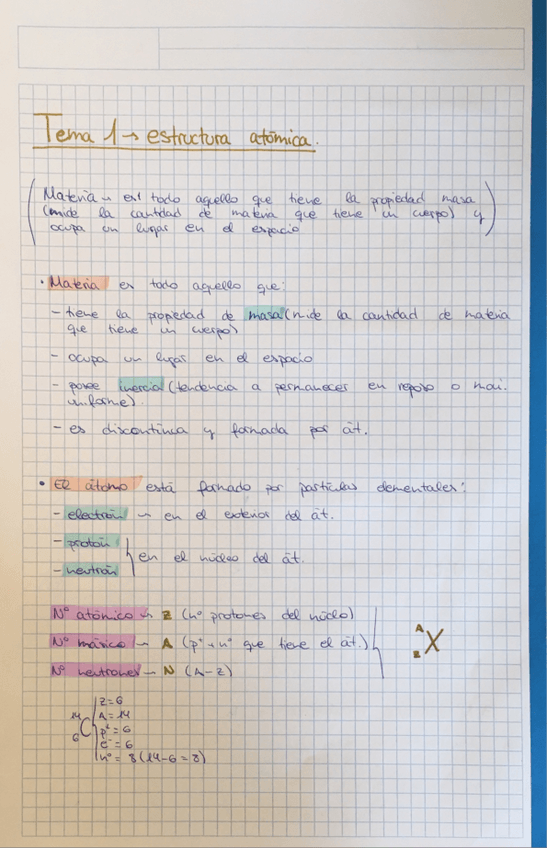 Tema 1 → estructura atómica.
Materia ~ est todo aquello que tiene la propiedad masa
(mide la cantidad de materia que tiene un cuerpo) y
ocupa un lugar en el espacio
• Materia es todo aquello que:
- tiene la propiedad de masa (mide la cantidad de materia
que tiene un cuerpo)
- ocupa un lugar en el espacio
- posee inercia (tendencia a permanecer en reposo o mov.
uniforme).
- es discontinua y formada por át.
• El átomo está formado por partículas elementales:
- electrón ~ en el exterior del át.
- protón
en el núcleo del át.
- neutrón
Nº atómico ~ Z (nº protones del núclo)
Nº másico ~ A (p⁺ + nº que tiene el át.)
A
Z X
Nº neutrones ~ N (A-Z)
14
6 C
Z=6
A=14
p⁺=6
e⁻=6
nº = 8 (14-6=8)